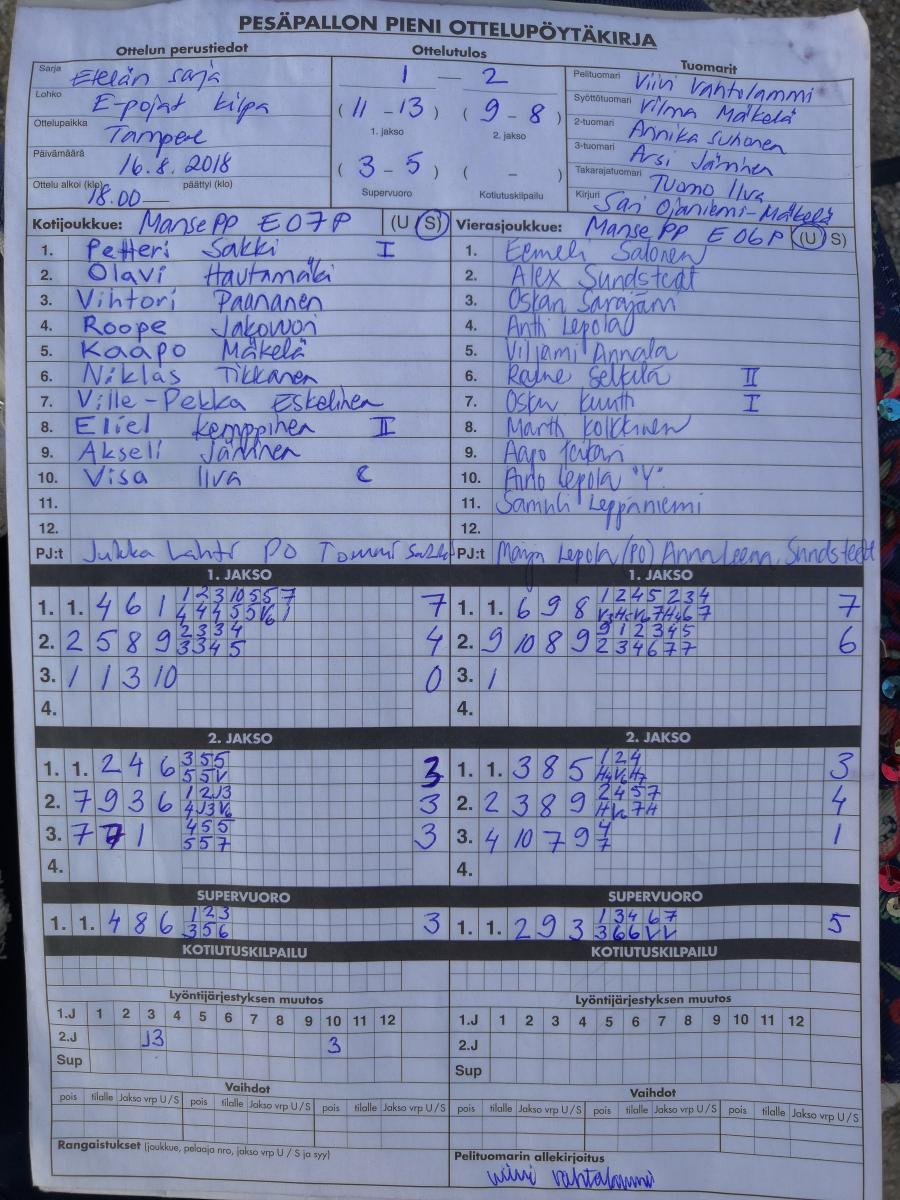 PESÄPALLON PIENI OTTELUPÖYTÄKIRJA
Ottelun perustiedot
Sarja Etelän sarja
Lohko E-pojat kilpa
Ottelupaikka Tampere
Päivämäärä 16.8.2018
Ottelu alkoi (klo) 18.00 päättyi (klo)
Ottelutulos
1 — 2
( 11 - 13 ) ( 9 - 8 )
1. jakso 2. jakso
( 3 - 5 ) ( - )
Supervuoro Kotiutuskilpailu
Tuomarit
Pelituomari Viivi Vahtolammi
Syöttötuomari Vilma Mäkelä
2-tuomari Annika Suhonen
3-tuomari Arsi Jäminen
Takarajatuomari Tuomo Ilva
Kirjuri Sari Ojaniemi-Mäkelä
Kotijoukkue: Manse PP E07P (U S)
1. Petteri Sakki I
2. Olavi Hautamäki
3. Vihtori Paananen
4. Roope Jakowori
5. Kaapo Mäkelä
6. Niklas Tikkanen
7. Ville-Pekka Eskelinen
8. Eliel Kemppinen II
9. Akseli Jäminen
10. Visa Ilva C
11.
12.
PJ:t Jukka Lahti PO Tommi Sakki
Vierasjoukkue: Manse PP E06P (U S)
1. Eemeli Salonen
2. Alex Sundstedt
3. Oskari Sarajärvi
4. Antti Lepola
5. Viljami Annala
6. II
7. I
8. Martti Kolkkinen
9. Aapo
10. Lepola "Y"
11. Samuli Leppäniemi
12.
PJ:t Marja Lepola (PO) Annaleena Sundstedt
1. JAKSO
1. 1. 4 6 1 1 2 3 10 5 5 7 7
4 4 4 5 5 V6 1
2. 2 5 8 9 2 3 3 4 4
3 3 4 5
3. 1 1 3 10 0
4.
1. JAKSO
1. 1. 6 9 8 1 2 4 5 2 3 4 7
V3 H5 V6 7 H4 6 7
2. 9 10 8 9 9 1 2 3 4 5 6
2 3 4 6 7 7
3. 1
4.
2. JAKSO
1. 1. 2 4 6 3 5 5 3
5 5 V
2. 7 9 3 6 1 2 J3 3
4 J3 V6
3. 7 1 4 5 5 3
5 5 7
4.
2. JAKSO
1. 1. 3 8 5 1 2 4 3
H4 V6 H7
2. 2 3 8 9 2 4 5 7 4
3. 4 10 7 9 4 1
7
4.
SUPERVUORO
1. 1. 4 8 6 1 2 3 3
3 5 6
SUPERVUORO
1. 1. 2 9 3 1 3 4 6 7 5
3 6 6 V V
KOTIUTUSKILPAILU
KOTIUTUSKILPAILU
Lyöntijärjestyksen muutos
1.J 1 2 3 4 5 6 7 8 9 10 11 12
2.J J3 3
Sup
Lyöntijärjestyksen muutos
1.J 1 2 3 4 5 6 7 8 9 10 11 12
2.J
Sup
Vaihdot
pois tilalle Jakso vrp U / S pois tilalle Jakso vrp U / S pois tilalle Jakso vrp U / S
Vaihdot
pois tilalle Jakso vrp U / S pois tilalle Jakso vrp U / S pois tilalle Jakso vrp U / S
Rangaistukset (joukkue, pelaaja nro, jakso vrp U / S ja syy)
Pelituomarin allekirjoitus
viivi vahtolammi